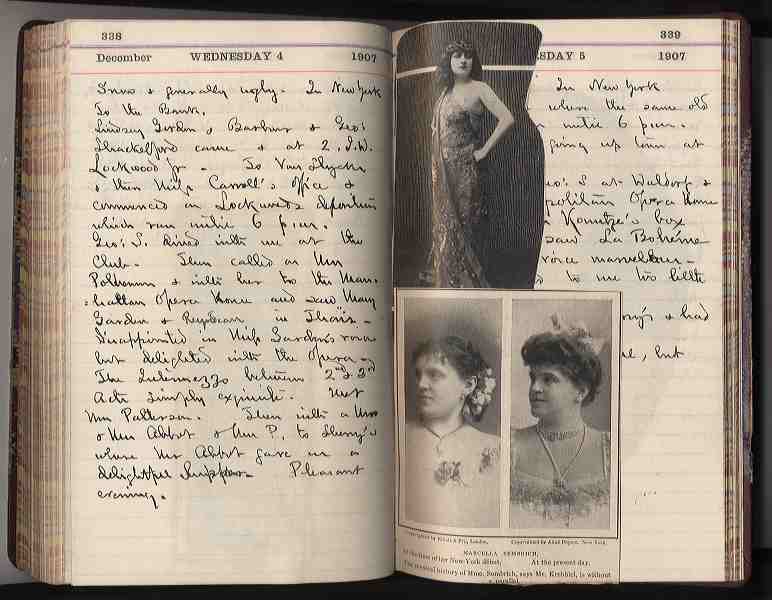 338
December WEDNESDAY 4 1907
Snow & generally ugly. In New York
To the Bank.
Lindsey Gordon, Barbour & Geo:
Shackelford came & at 2. J.W.
Lockwood Jr - To Van Slyck
& then Miss Carroll's office &
commenced on Lockwood's deposition
which ran until 6 p.m.
Geo: S. dined with me at the
Club. Then called on Mrs
Patterson & with her to the Man-
:hattan Opera House and saw Mary
Garden & Renaud in Thaïs -
Disappointed in Miss Garden's voice
but delighted with the Opera -
The Intermezzo between 2nd & 3rd
Acts simply exquisite. Met
Mrs Patterson. Then with a Mr
& Mrs Abbot & Mrs P. to Sherry's
where Mr Abbot gave us a
delightful supper - Pleasant
evening.
339
SDAY 5 1907
In New York
where the same old
until 6 p.m.
going up town at
eo: S at Waldorf &
politan Opera House
box
saw La Bohéme
voice marvellous -
to me too little
rry's & had
but
Copyrighted by Aimé Dupont, New York.
MARCELLA SEMBRICH,
At the time of her New York début. At the present day.
The musical history of Mme. Sembrich, says Mr. Krehbiel, is without
a parallel.